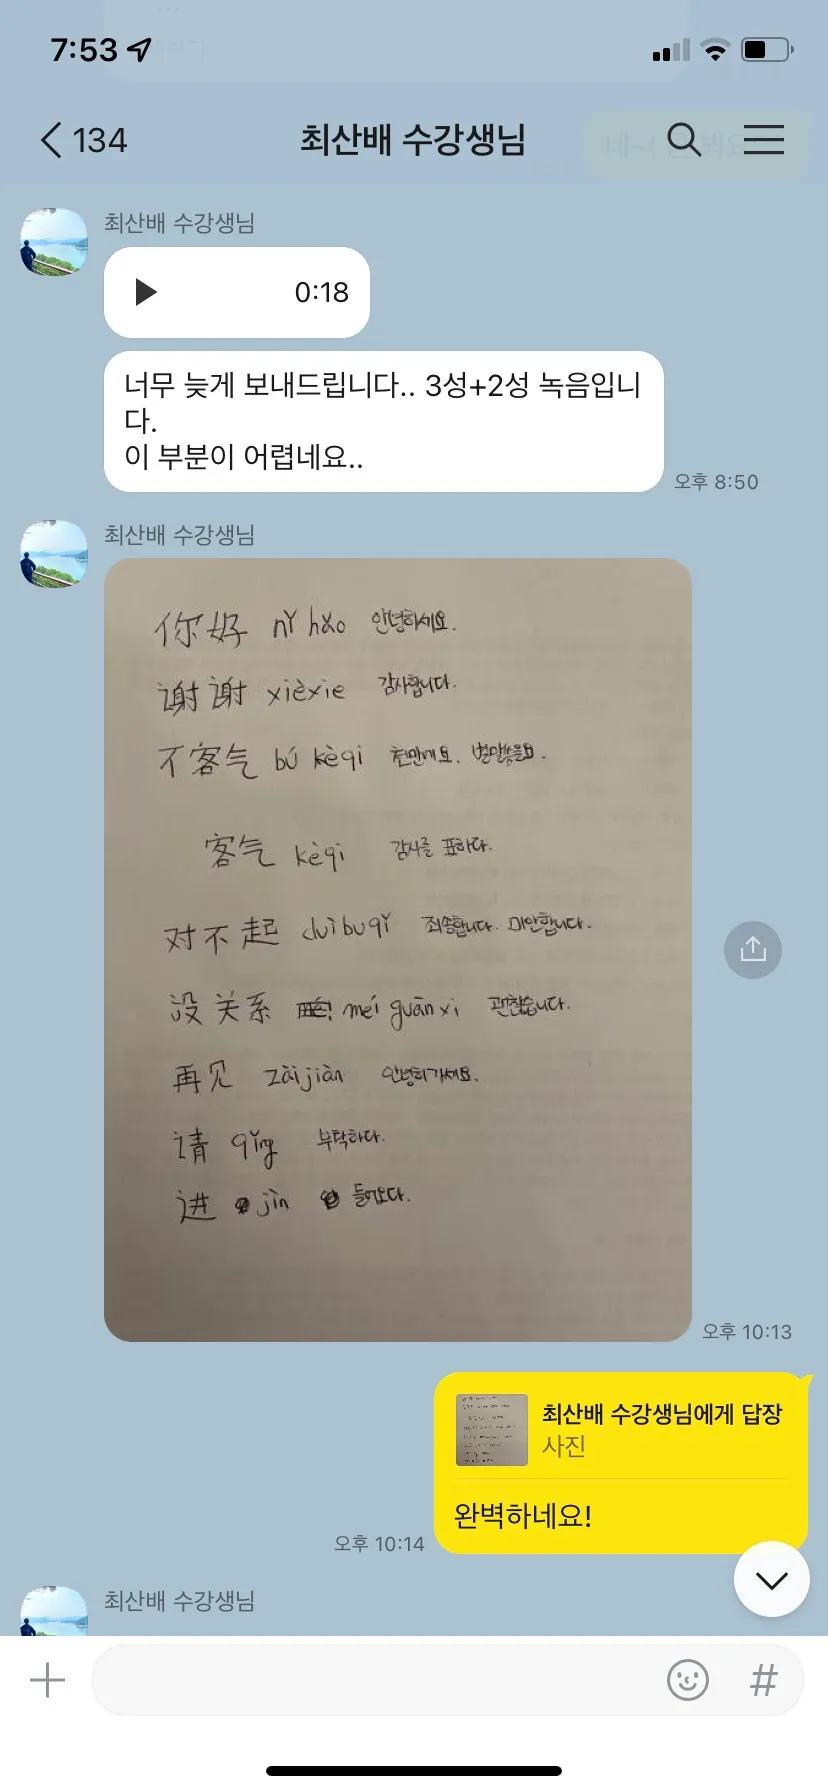 7:53
134
최산배 수강생님
최산배 수강생님
0:18
너무 늦게 보내드립니다.. 3성+2성 녹음입니
다.
이 부분이 어렵네요..
오후 8:50
최산배 수강생님
你好 nǐ hǎo 안녕하세요.
谢谢 xièxie 감사합니다.
不客气 bú kèqi 천만에요. 별말씀을요.
客气 kèqi 감사를 표하다.
对不起 duìbuqǐ 죄송합니다. 미안합니다.
没关系 méi guānxi 괜찮습니다.
再见 zàijiàn 안녕히가세요.
请 qǐng 부탁하다.
进 jìn 들어오다.
오후 10:13
최산배 수강생님에게 답장
사진
완벽하네요!
오후 10:14
최산배 수강생님
#